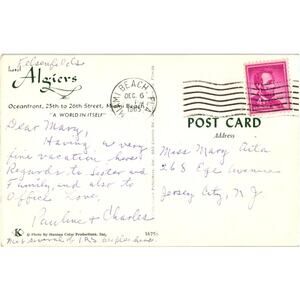 hotel
Algiers
Oceanfront, 25th to 26th Street, Miami Beach
"A WORLD IN ITSELF"
MIAMI BEACH, FLA.
DEC 6
Dear Mary,
Having a very
fine vacation here.
Regards to Sister and
Family, and also to
Office Gang.
Pauline & Charles
of IRS
K © Photo by
Color Productions, Inc.
POST CARD
Address
Miss Mary
Jersey City, N.J